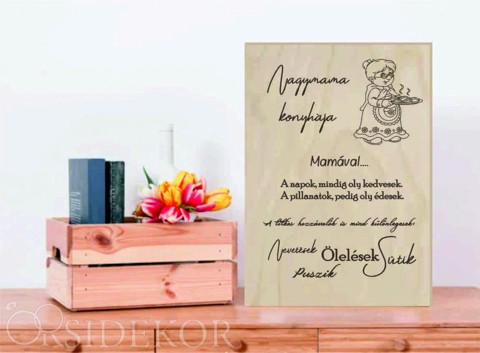 Nagymama
konyhája
Mamával....
A napok, mindig oly kedvesek.
A pillanatok, pedig oly édesek.
A titkos hozzávalók is mind különlegesek:
Nevetések Ölelések Sütik
Puszik
ORSIDEKOR